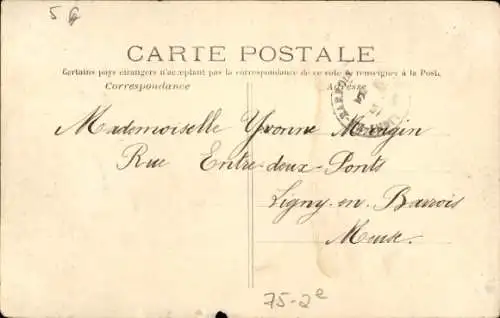 5 G
CARTE POSTALE
Certains pays étrangers n'acceptent pas la correspondance de ce côté se renseigner à la Poste.
Correspondance
Adresse
Mademoiselle Yvonne Mangin
Rue Entre-deux-Ponts
Ligny-en-Barrois
Meuse.
75-2e